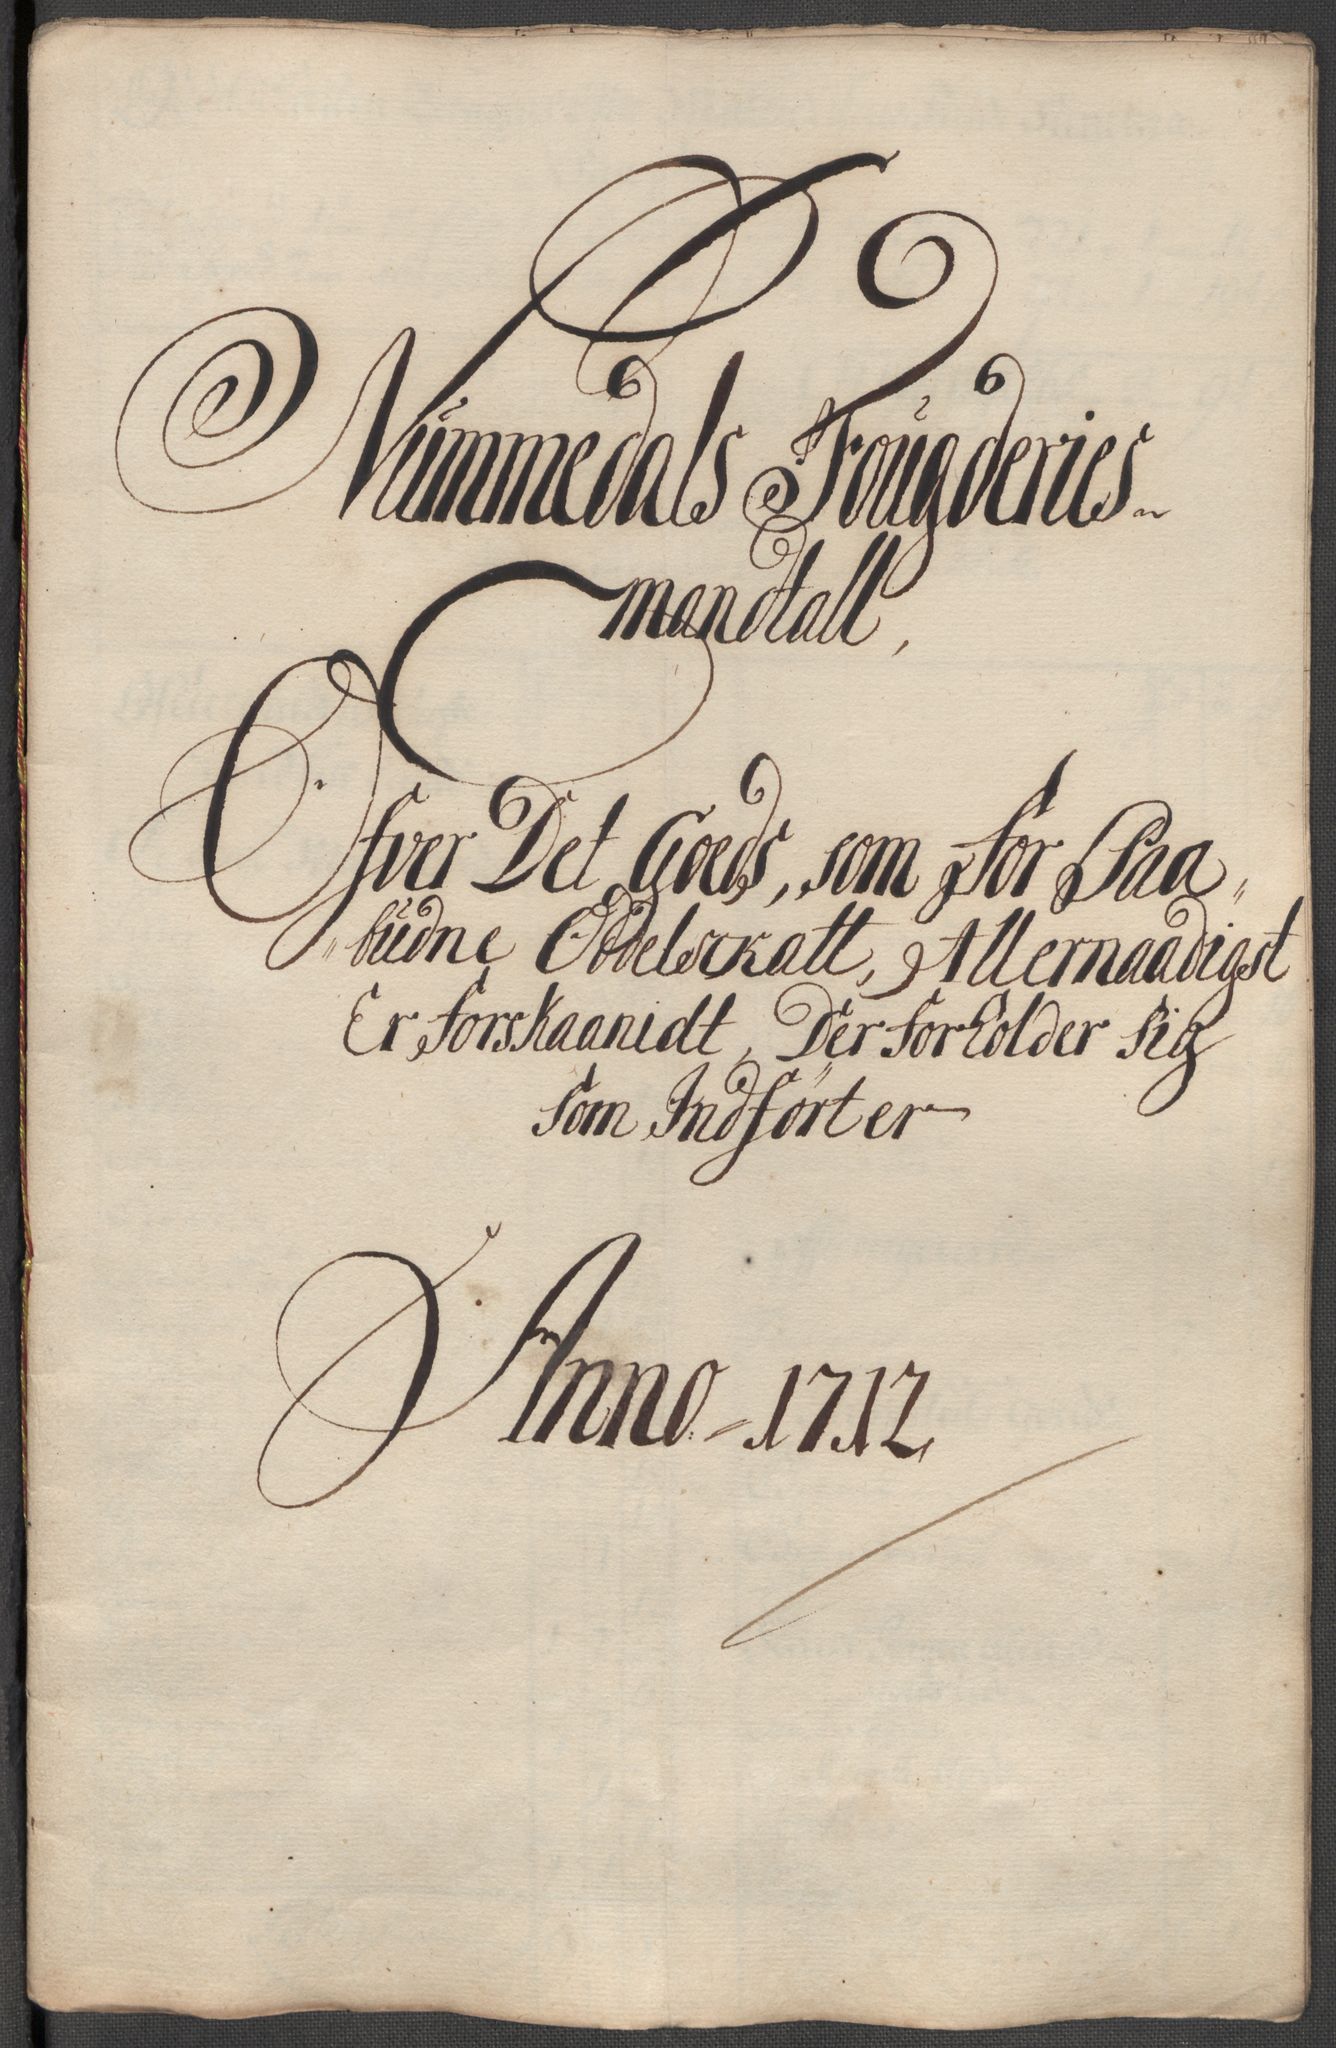 Nummedals Fougderies
mandtall,
Ofver Det Goeds, som for Paa„
„budne Oddelsckatt, Allernaadigst
Er forskaanidt, Der forholder sig
som Indført er
Anno - 1712